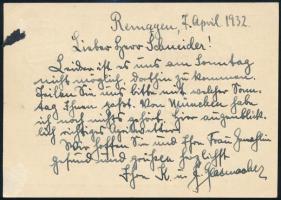 Remagen, 7. April 1932.
Lieber Herr Schneider!
Leider ist es uns am Sonntag
nicht möglich, dorthin zu kommen.
Teilen Sie uns bitte mit welcher Sonn-
tag Ihnen paßt. Von München habe
ich noch nichts gehört, hier augenblick-
lich
Wir hoffen Sie und Ihre Frau Gemahlin
gesund und grüßen herzlichst
Ihre K. u. J.